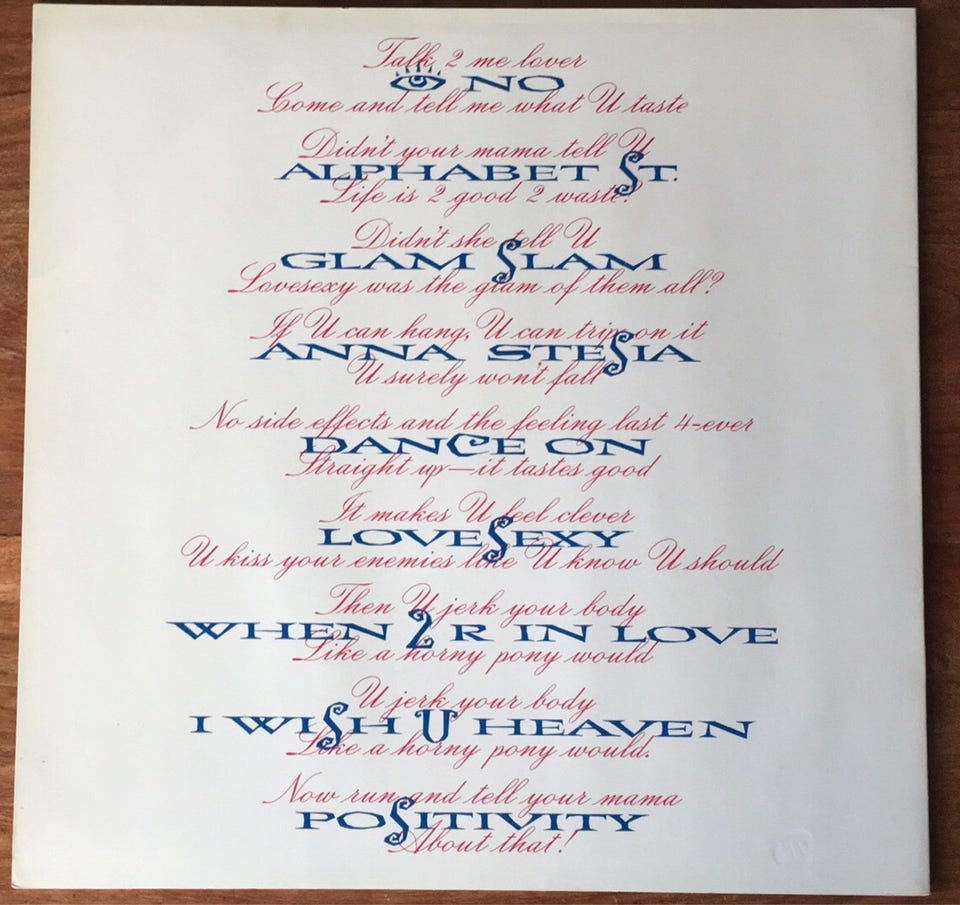 Talk 2 me lover
NO
Come and tell me what U taste
Didn't your mama tell U
ALPHABET ST.
Life is 2 good 2 waste?
Didn't she tell U
GLAM SLAM
Lovesexy was the glam of them all?
If U can hang, U can trip on it
ANNA STESIA
U surely won't fall
No side effects and the feeling last 4-ever
DANCE ON
Straight up—it tastes good
It makes U feel clever
LOVESEXY
U kiss your enemies like U know U should
Then U jerk your body
WHEN 2 R IN LOVE
Like a horny pony would
U jerk your body
I WISH U HEAVEN
Like a horny pony would.
Now run and tell your mama
POSITIVITY
About that!